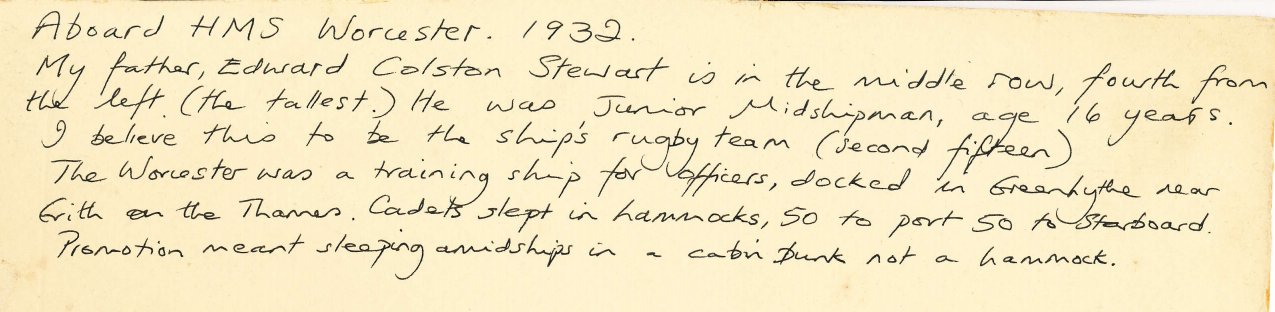 Aboard HMS Worcester. 1932.
My father, Edward Colston Stewart is in the middle row, fourth from
the left (the tallest.) He was Junior Midshipman, age 16 years.
I believe this to be the ship's rugby team (second fifteen)
The Worcester was a training ship for officers, docked in Greenhythe near
Erith on the Thames. Cadets slept in hammocks, 50 to port 50 to Starboard.
Promotion meant sleeping amidships in a cabin bunk not a hammock.